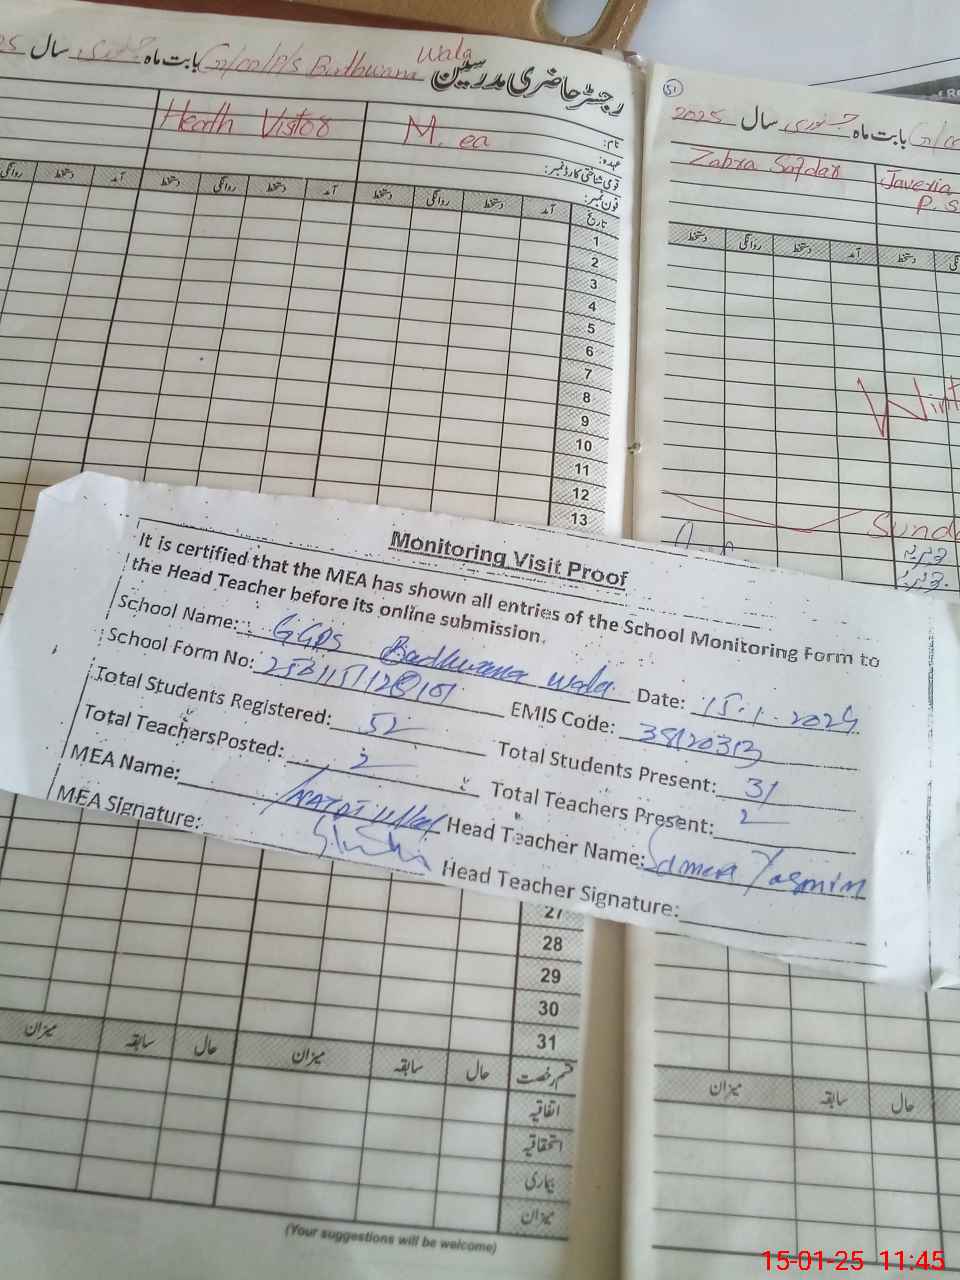 رجسٹر حاضری مدرسین بابت ماہ جنوری سال
Wala
نام:
عہدہ:
قومی شناختی کارڈ نمبر:
فون نمبر:
Health Vistor M. ea
تاریخ آمد دستخط روانگی دستخط آمد دستخط روانگی دستخط آمد دستخط روانگی
1
2
3
4
5
6
7
8
9
10
11
12
13
51
بابت ماہ جنوری سال 2025
Zahra Safdar Javeria
P.S
دستخط روانگی دستخط آمد دستخط
Monitoring Visit Proof
It is certified that the MEA has shown all entries of the School Monitoring Form to
the Head Teacher before its online submission.
School Name: GGPS Badhwana wala Date: 15.1.2025
School Form No: EMIS Code:
Total Students Registered: 52 Total Students Present: 31
Total Teachers Posted: 2 Total Teachers Present: 2
MEA Name: Head Teacher Name: Samera Yasmin
MEA Signature: Head Teacher Signature:
27
28
29
30
31
قسم رخصت حال سابقہ میزان حال سابقہ میزان
اتفاقیہ
استحقاقیہ
بیماری
میزان
(Your suggestions will be welcome)
حال سابقہ میزان
15-01-25 11:45